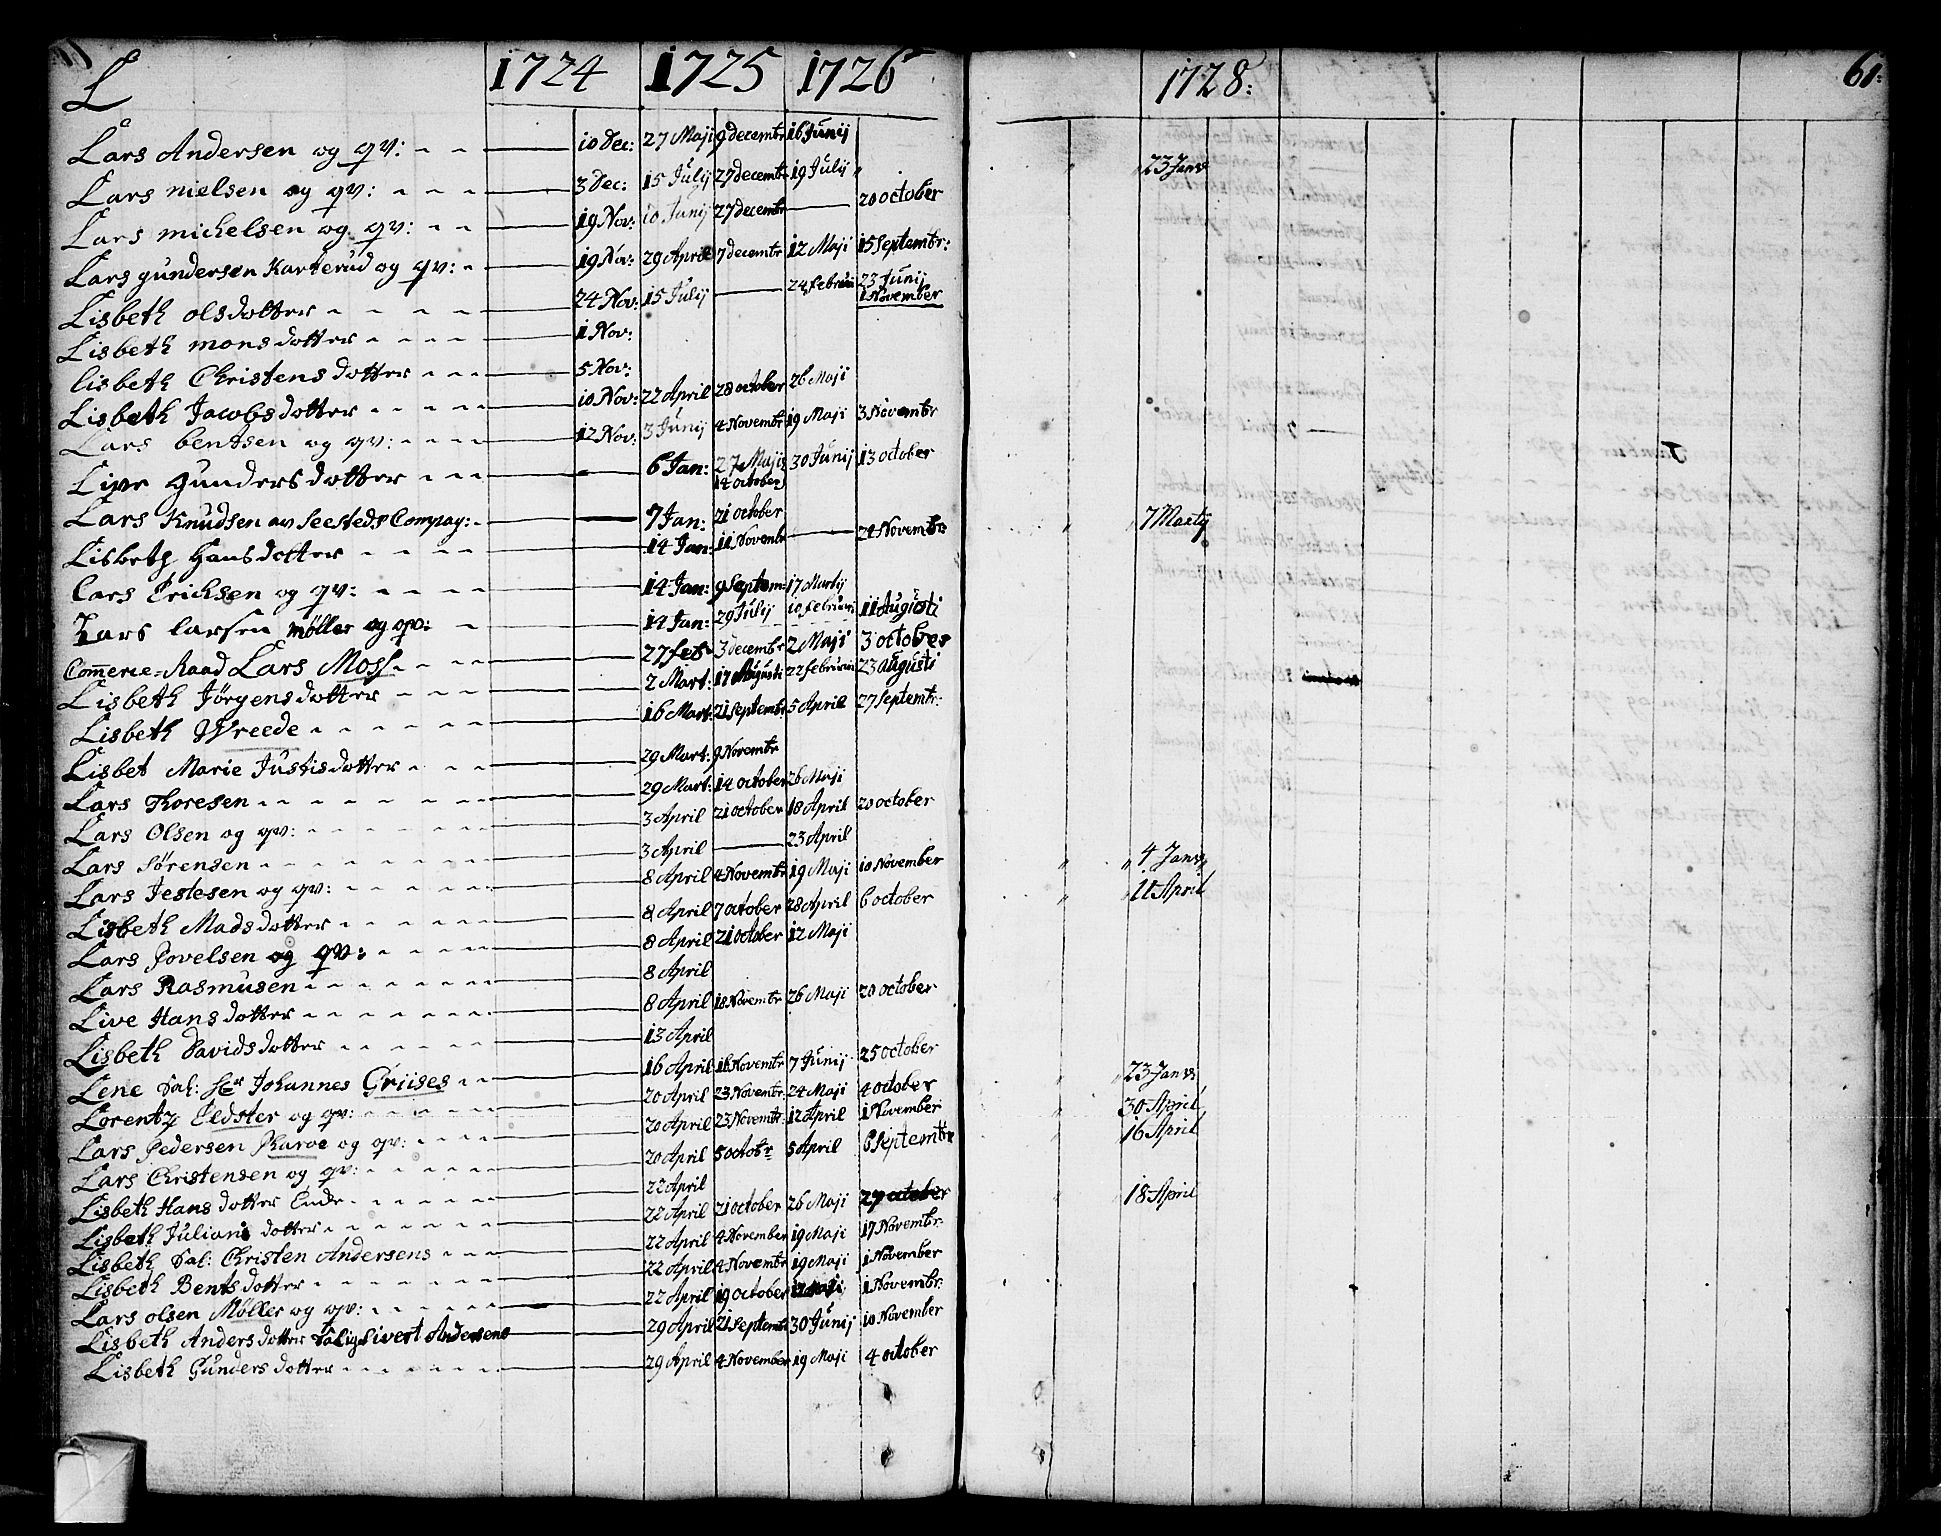 L 1724 1725 1726 1728: 61:
Lars Andersen og qv: 10 Dec: 27 Maji 9 decembr 16 Junij
Lars nielsen og qv: 3 Dec: 15 Julij 27 decembr 19 Julij 23 Janv
Lars michelsen og qv: 19 Nov: 10 Junij 27 decembr 20 october
Lars gundersen Karterud og qv: 19 Nov: 29 April 7 decembr 12 Maji 15 Septembr:
Lisbeth olsdotter 24 Nov: 15 Julij 24 februari 23 Junij 1 November
Lisbeth monsdotter 1 Nov:
lisbeth Christensdotter 5 Nov:
Lisbeth Jacobsdotter 10 Nov: 22 April 28 october 26 Maji
Lars bentsen og qv: 12 Nov: 3 Junij 4 Novembr 19 Maji 3 Novembr
Live gundersdotter 6 Jan: 27 Maji 14 october 30 Junij 13 october
Lars Knudsen av Seesteds Compag: 7 Jan: 21 october 7 Martij
Lisbeth Hansdotter 14 Jan: 11 Novembr 24 Novembr
Lars Erichsen og qv: 14 Jan: 9 Septem: 17 Martij
Lars larsen møller og qv: 14 Jan: 29 Julij 10 februari 11 Augusti
Commerce-Raad Lars Moss 27 feb 3 decembr 2 Maji 3 october
Lisbeth Jørgensdotter 2 Mart: 17 Augusti 22 februari 23 augusti
Lisbeth Wreede 16 Mart: 21 Septembr 5 April 27 Septembr:
Lisbet Marie Justisdotter 29 Mart: 9 Novembr
Lars Thoresen 29 Mart: 14 october 26 Maji
Lars Olsen og qv: 3 April 21 october 18 April 20 october
Lars Sørensen 3 April 23 April
Lars Jestesen og qv: 8 April 4 Novembr 19 Maji 10 November 4 Janv
Lisbeth Madsdotter 8 April 7 october 28 April 6 october 11 April
Lars Povelsen og qv: 8 April 21 october 12 Maji
Lars Rasmusen 8 April
Live Hansdotter 8 April 18 Novembr 26 Maji 20 october
Lisbeth Davidsdotter 13 April
Lene Sal: Hr Johannes Griises 16 April 16 Novembr 7 Junij 25 october
Lorentz Eldster og qv: 20 April 23 Novembr 24 Maji 4 october 23 Janv
Lars Pedersen Skarve og qv: 20 April 23 Novembr: 12 April 1 November 30 April
Lars Christensen og qv: 20 April 5 octobr 5 April 6 Septembr 16 April
Lisbeth Hansdotter Ende 22 April
Lisbeth Julianidotter 22 April 21 october 26 Maji 27 october 18 April
Lisbeth Sal: Christen Andersens 22 April 4 November 19 Maji 17 Novembr:
Lisbeth Bentsdotter 22 April 4 Novembr 19 Maji 1 November
Lars olsen Møller og qv: 22 April 19 october 12 Maji 1 Novembr:
Lisbeth Andersdotter Salig Sivert Andersens 29 April 21 Septembr 30 Junij 10 November
Lisbeth Gundersdotter 29 April 4 November 19 Maji 4 october